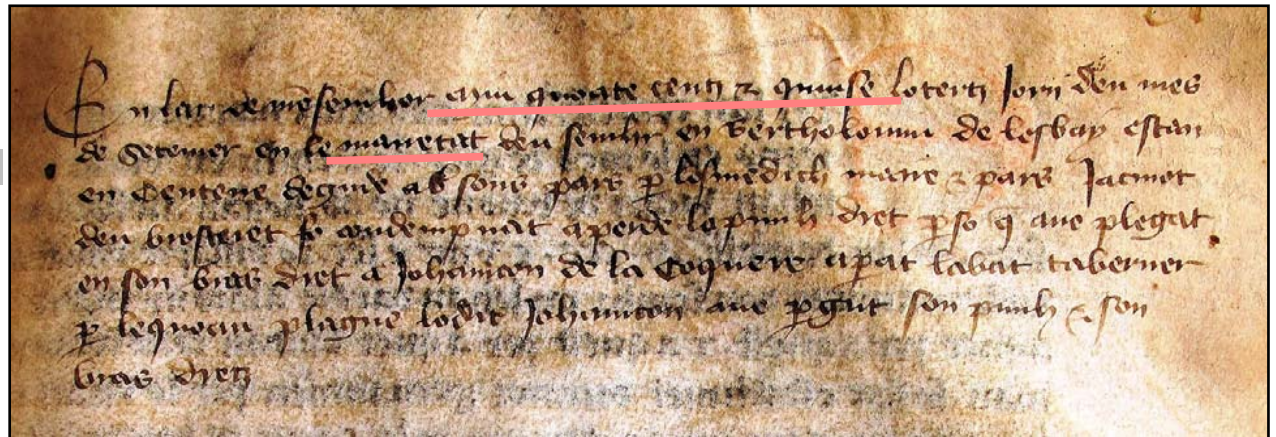 En lan de nrẽ senhor mil quoate centz & quinse lotertz Jorn deu mes
de Setemer en le mayretat deu senhr en Bertholomiu de lesbay estan
en Centene degude ab sons pars per losmedich maire & pars Jacmot
deu brosteret fo condempnat aperde lopunh dret perso q̃ ave plegat
en son bras dret a Johanicon de la Coquere aperat labat taberner
per lequoau plague lodit Johanicon ave pergut son punh & son
bras dretz